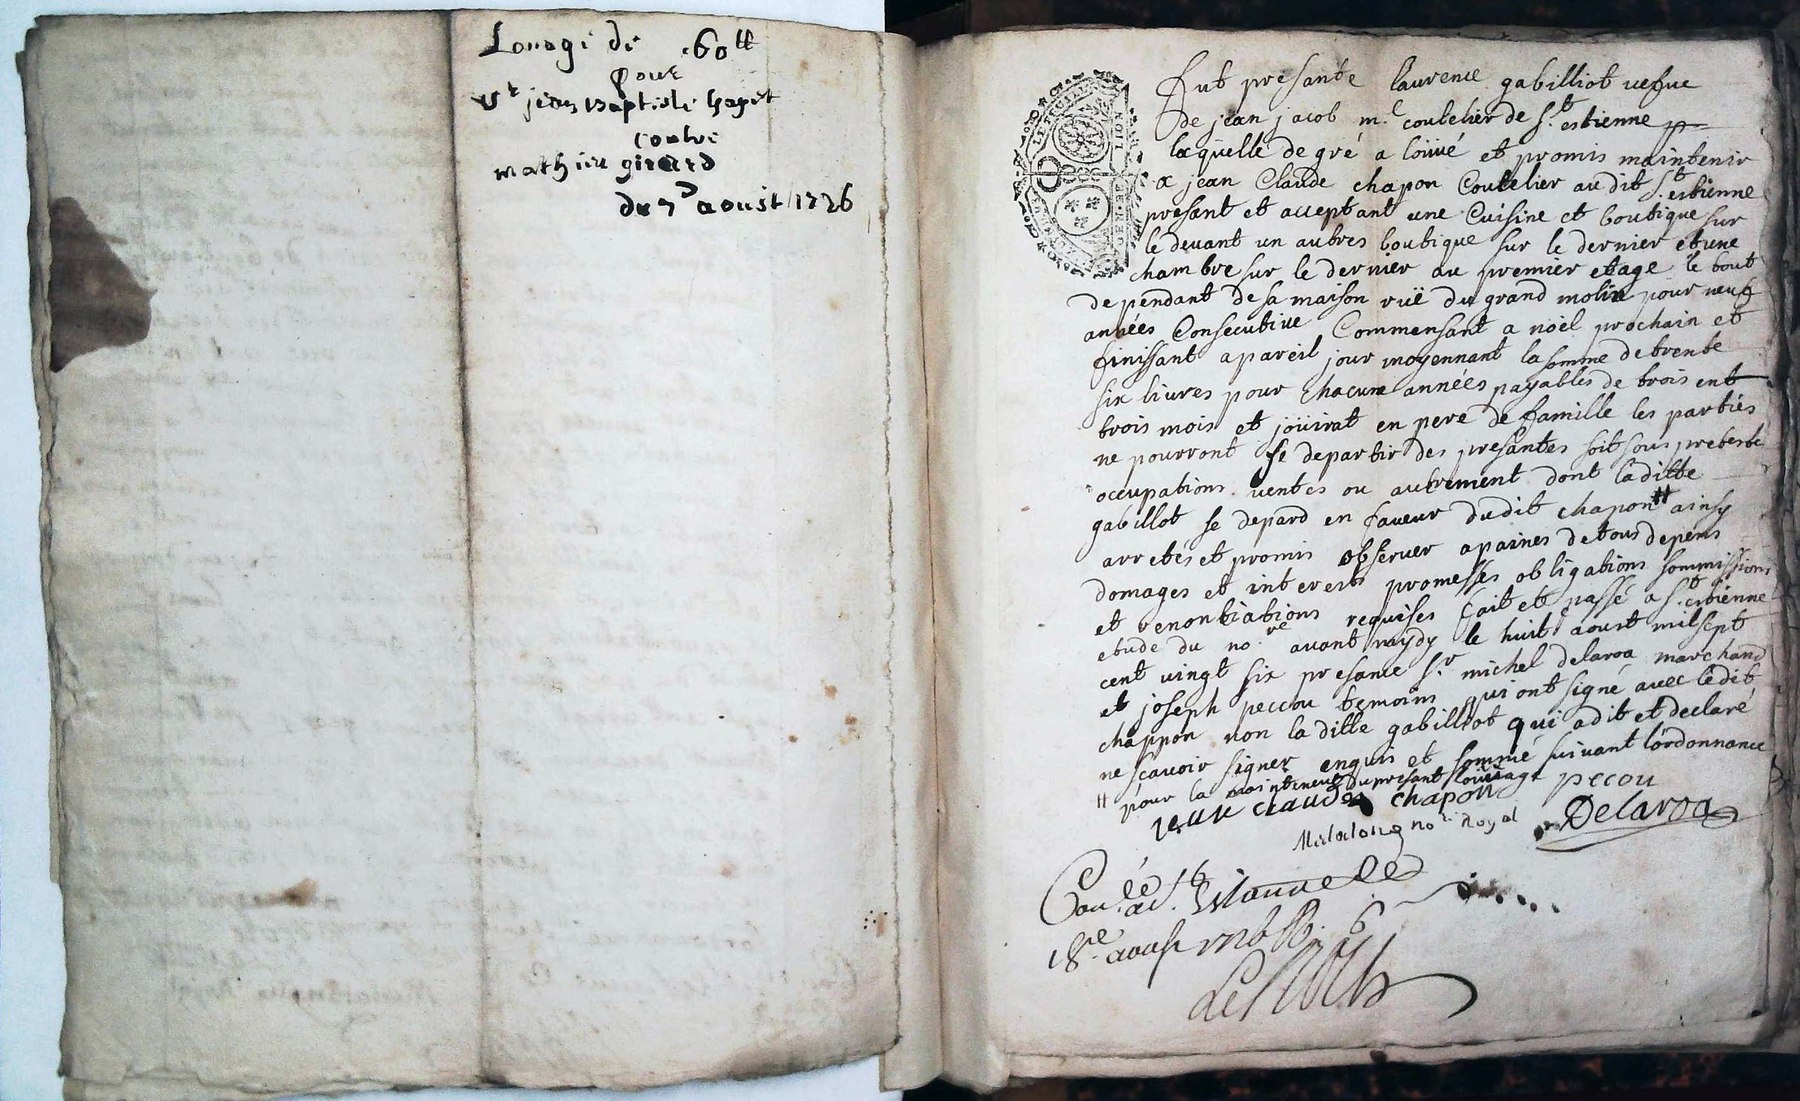 Louage de 60tt
pour
Sr jean Baptiste
contre
mathieu girard
du 7 aoust 1726
GENER
LION
fut presante laurence gabilliot vefve
de jean jacob me coutelier de st estienne
laquelle de gré a loüué et promis maintenir
a jean Claude chapon Coutelier audit st estienne
presant et acceptant une Cuisine et boutique sur
le devant un autres boutique sur le dernier et une
chambre sur le dernier au premier etage le tout
dependant de sa maison ruë du grand molin pour neuf
années Consecutive Commensant a noël prochain et
finissant apareil jour moyennant la somme de trente
six livres pour chacune années payables de trois ent
trois mois et joüirat en pere de famille les parties
ne pourront se departir des presantes soit sous preteste
occupations ventes ou autrement dont laditte
gabillot se depard en faveur dudit chapon # ainsy
arretés et promis observer apaines de tous depens
domages et interests promesses obligations sommissions
et renontiations requises fait et passé a st estienne
etude du nore avant mydy le huit aoust mil sept
cent vingt six presance sr michel delaroa marchand
et joseph peccou temoins qui ont signé avec ledit
chappon non la ditte gabilliot qui a dit et declaré
ne scavoir signer enquis et sommé suivant lordonnance
# pour la maintenue du presant loüage
pecou
jean claude chapon
Delaroa
nore Royal
18e aoust